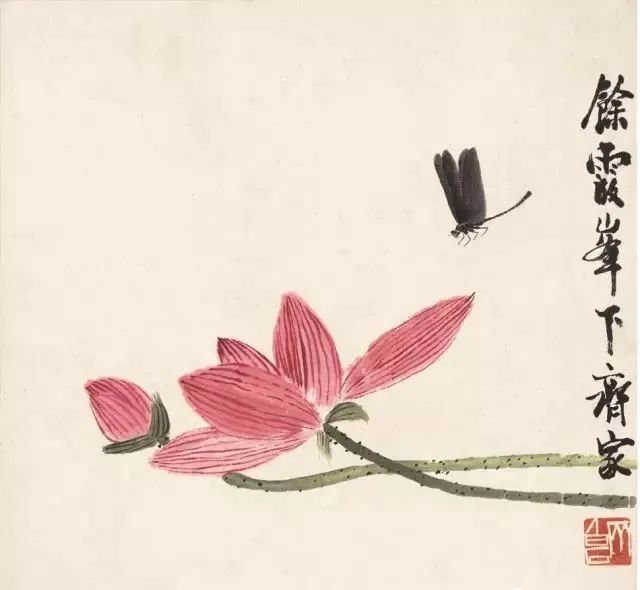 餘霞峯下齊家